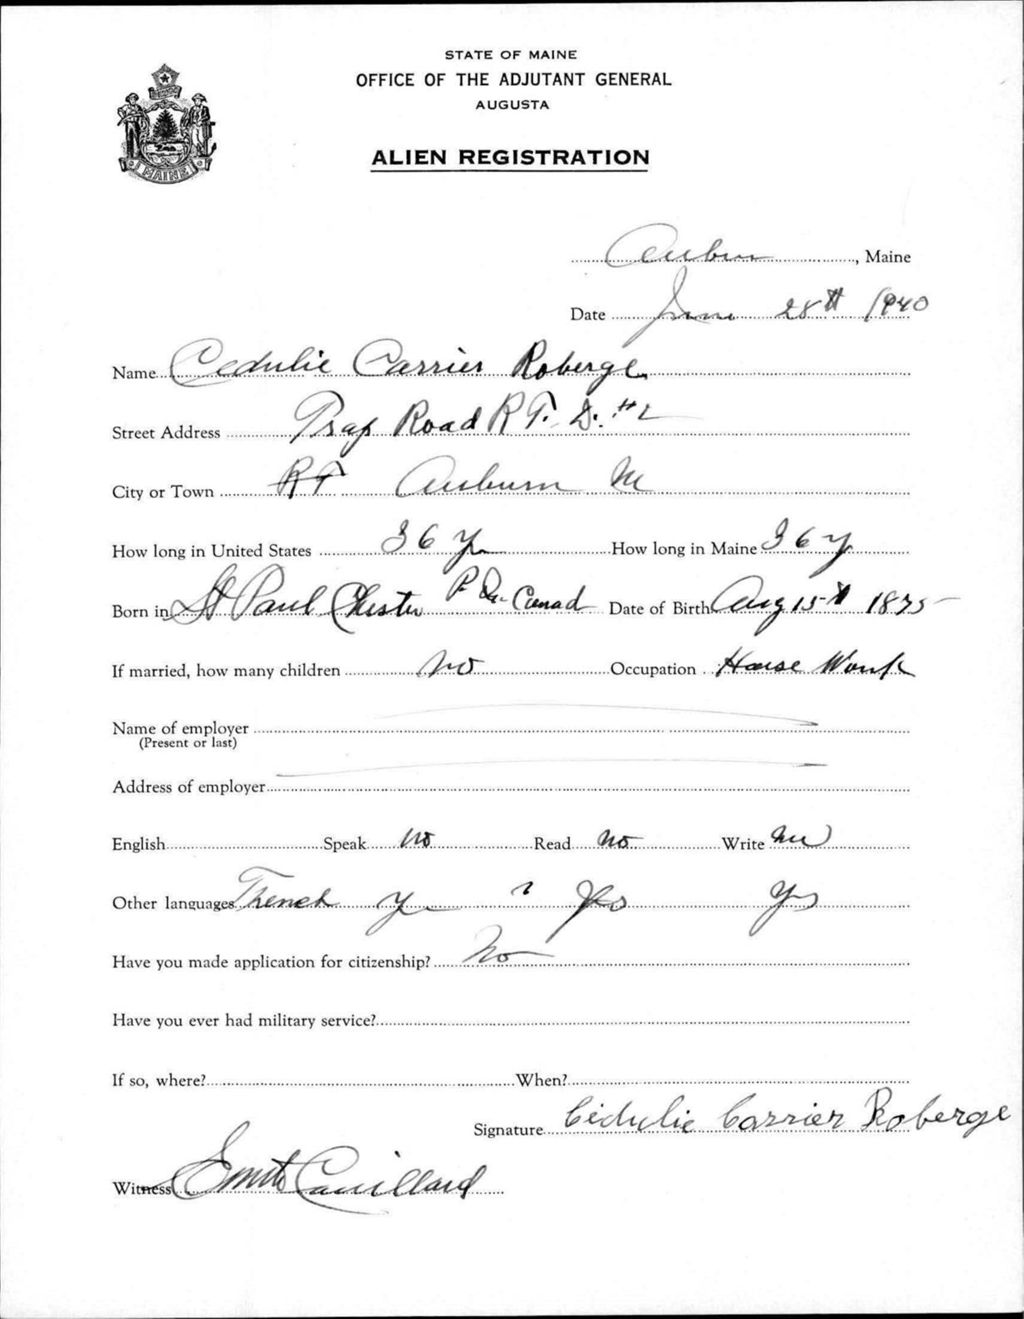 STATE OF MAINE
OFFICE OF THE ADJUTANT GENERAL
AUGUSTA
ALIEN REGISTRATION
MAINE
Auburn, Maine
Date June 28th 1940
Name Cedulie Carrier Roberge
Street Address Road R F. D. #2
City or Town RF Auburn Me
How long in United States 36 y How long in Maine 36 y
Born in St Paul Chester P. Qu Canad Date of Birth Aug 15th 1875
If married, how many children no Occupation House Work
Name of employer
(Present or last)
Address of employer
English Speak no Read no Write no
Other languages French Yes Yes Yes
Have you made application for citizenship? No
Have you ever had military service?
If so, where? When?
Signature Cédulie Carrier Roberge
Witness